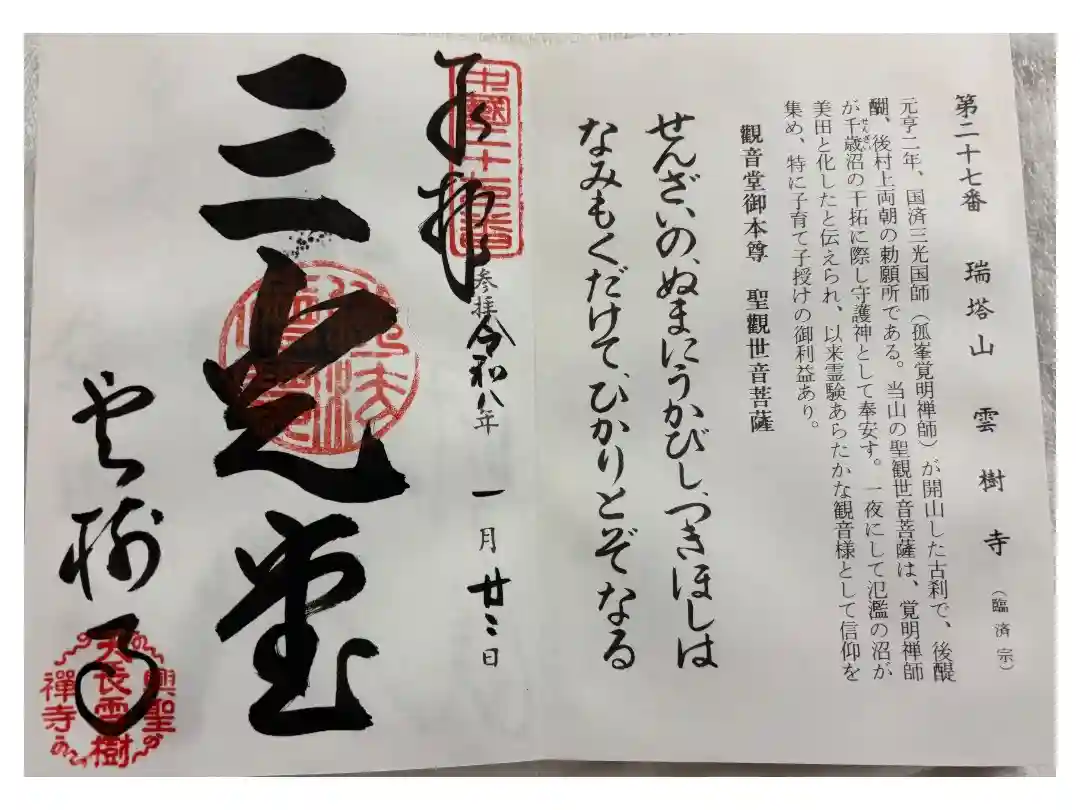 第二十七番 瑞塔山 雲樹寺（臨済宗）
元亨二年、国済三光国師（孤峯覚明禅師）が開山した古刹で、後醍
醐、後村上両朝の勅願所である。当山の聖観世音菩薩は、覚明禅師
が千歳沼の干拓に際し守護神として奉安す。一夜にして氾濫の沼が
せんざい
美田と化したと伝えられ、以来霊験あらたかな観音様として信仰を
集め、特に子育て子授けの御利益あり。
觀音堂御本尊 聖觀世音菩薩
せんざいの、ぬまにうかびし、つきほしは
なみもくだけて、ひかりとぞなる
奉拝
中國二十七番
参拝 令和八年 一月廿二日
三光堂
雲樹寺
興聖
大長雲樹
禪寺